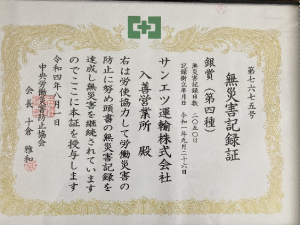 第七六七五号
無災害記録証
銀賞（第四種）
無災害記録日数 二〇五〇日
記録樹立年月日 令和一年九月二十六日
サンエツ運輸株式会社
入善営業所 殿
右は労使協力して労働災害の
防止に努め頭書の無災害記録を
達成し無災害を継続されています
のでここに本証を授与します
令和四年八月一日
中央労働災害防止協会
会長 十倉雅和